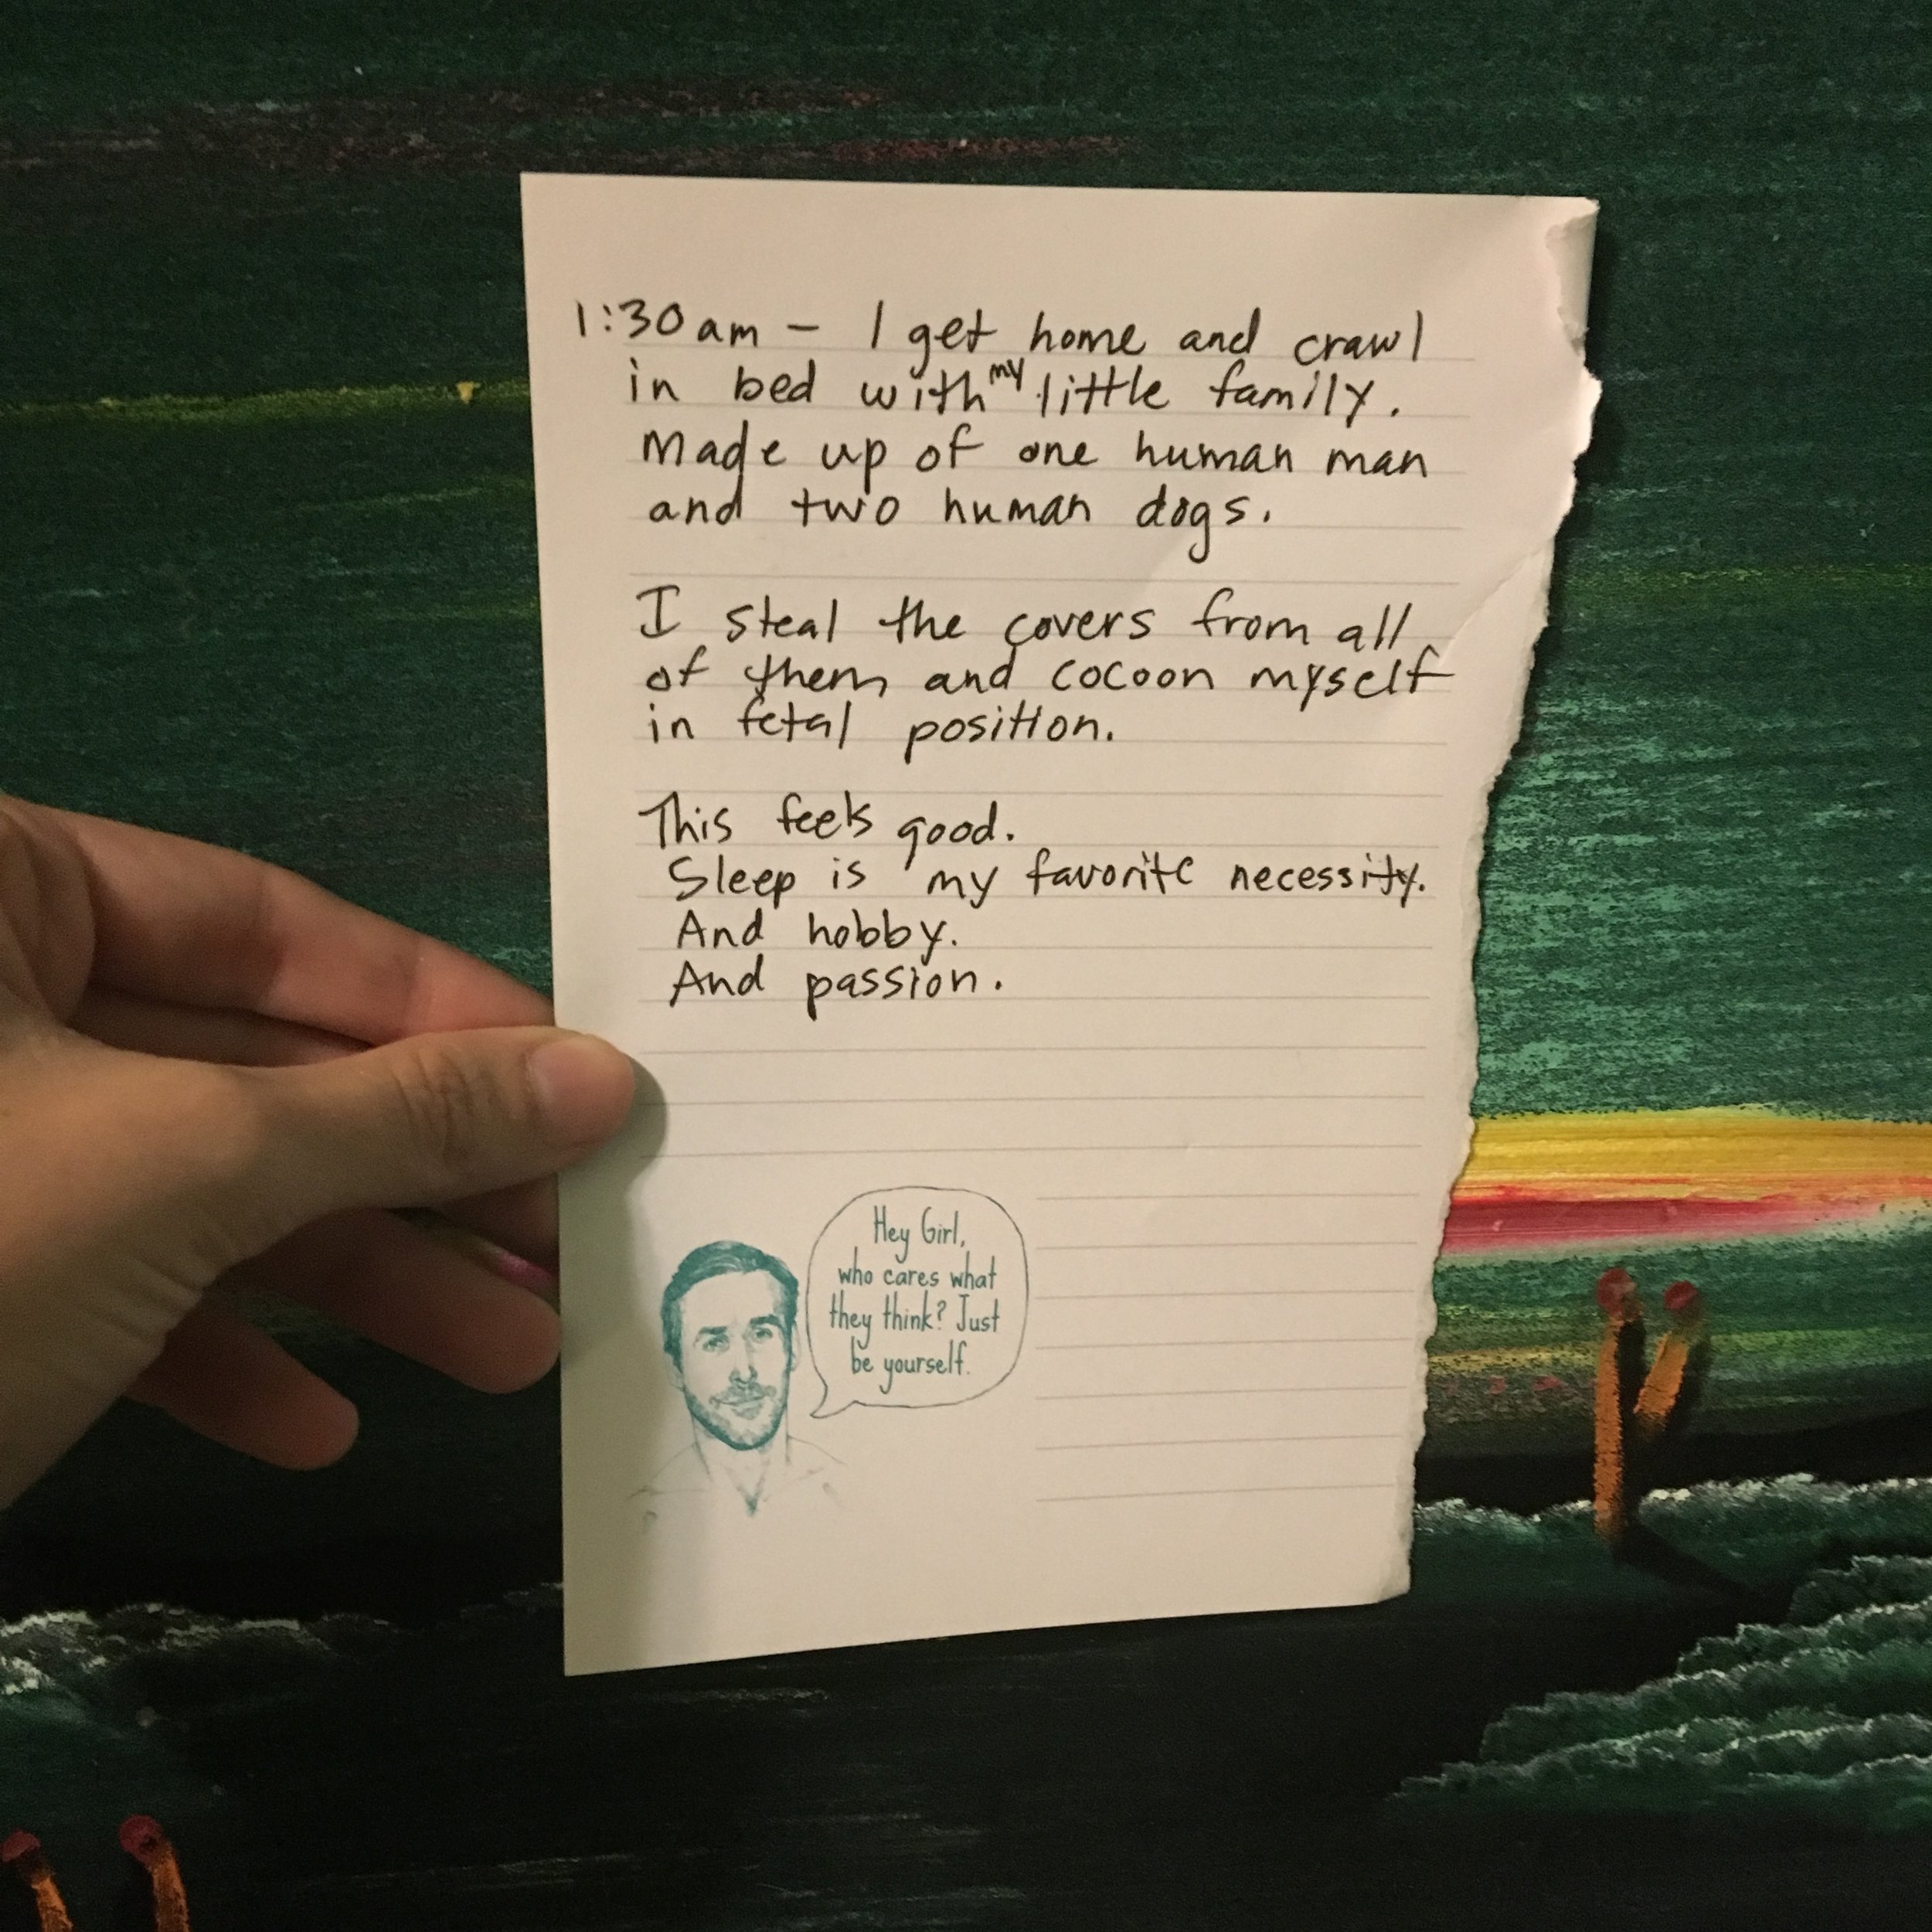 1:30am - I get home and crawl
in bed with my little family.
Made up of one human man
and two human dogs.
I steal the covers from all
of them and cocoon myself
in fetal position.
This feels good.
Sleep is my favorite necessity.
And hobby.
And passion.
Hey Girl,
who cares what
they think? Just
be yourself.